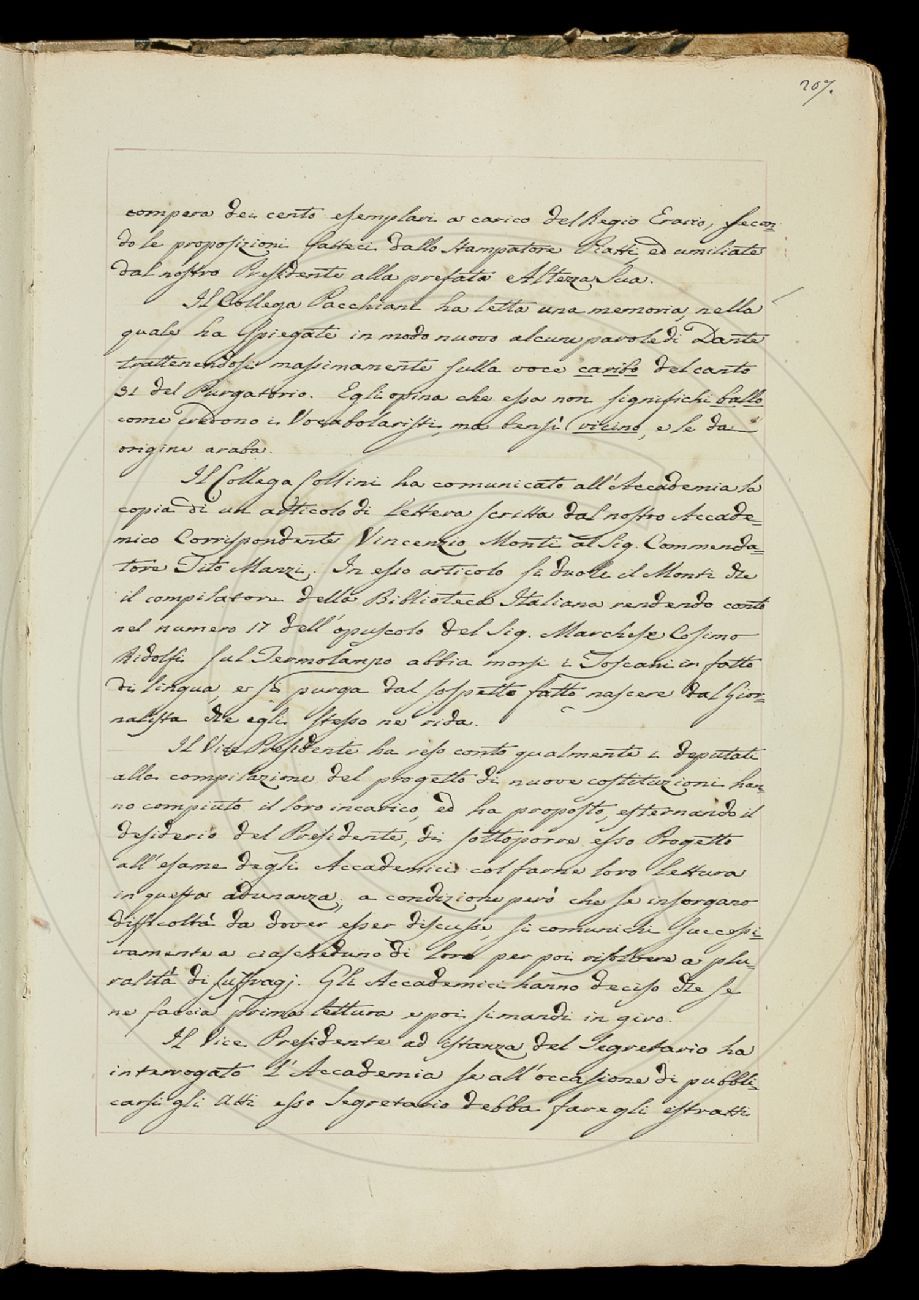 207.
compera dei cento esemplari a carico del Regio Erario, secon=
do le proposizioni fatteci dallo Stampatore Piatti, ed umiliate
dal nostro Presidente alla prefata Altezza Sua.
Il Collega Pacchiani ha letta una memoria, nella
quale ha spiegate in modo nuovo alcune parole di Dante
trattenendosi massimamente sulla voce caribo del canto
31 del Purgatorio. Egli opina che essa non significhi ballo
come credono i Vocabolaristi, ma bensì vicino, e le da
origine araba.
Il Collega Collini ha comunicato all'Accademia la
copia di un articolo di lettera scritta dal nostro Accade=
mico Corrispondente Vincenzio Monti al Sig. Commenda=
tore Tito Manzi. In esso articolo si duole il Monti che
il compilatore della Biblioteca Italiana rendendo conto
nel numero 17 dell'opuscolo del Sig. Marchese Cosimo
Ridolfi sul Termolampo abbia morsi i Toscani in fatto
di lingua, e si purga dal sospetto fatto nascere dal Gior=
nalista che egli stesso ne rida.
Il Vice Presidente ha reso conto qualmente i deputati
alla compilazione del progetto di nuove costituzioni han=
no compiuto il loro incarico, ed ha proposto, esternando il
desiderio del Presidente, di sottoporre esso Progetto
all'esame degli Accademici col farne loro lettura
in questa adunanza, a condizione però che se insorgano
difficoltà da dover esser discusse, si comunichi successi=
vamente a ciascheduno di loro per poi risolvere a plu=
ralità di suffragj. Gli Accademici hanno deciso che se
ne faccia prima lettura e poi si mandi in giro.
Il Vice Presidente ad istanza del Segretario ha
interrogato l'Accademia se all'occasione di pubbli=
carsi gli Atti esso Segretario debba fare gli estratti